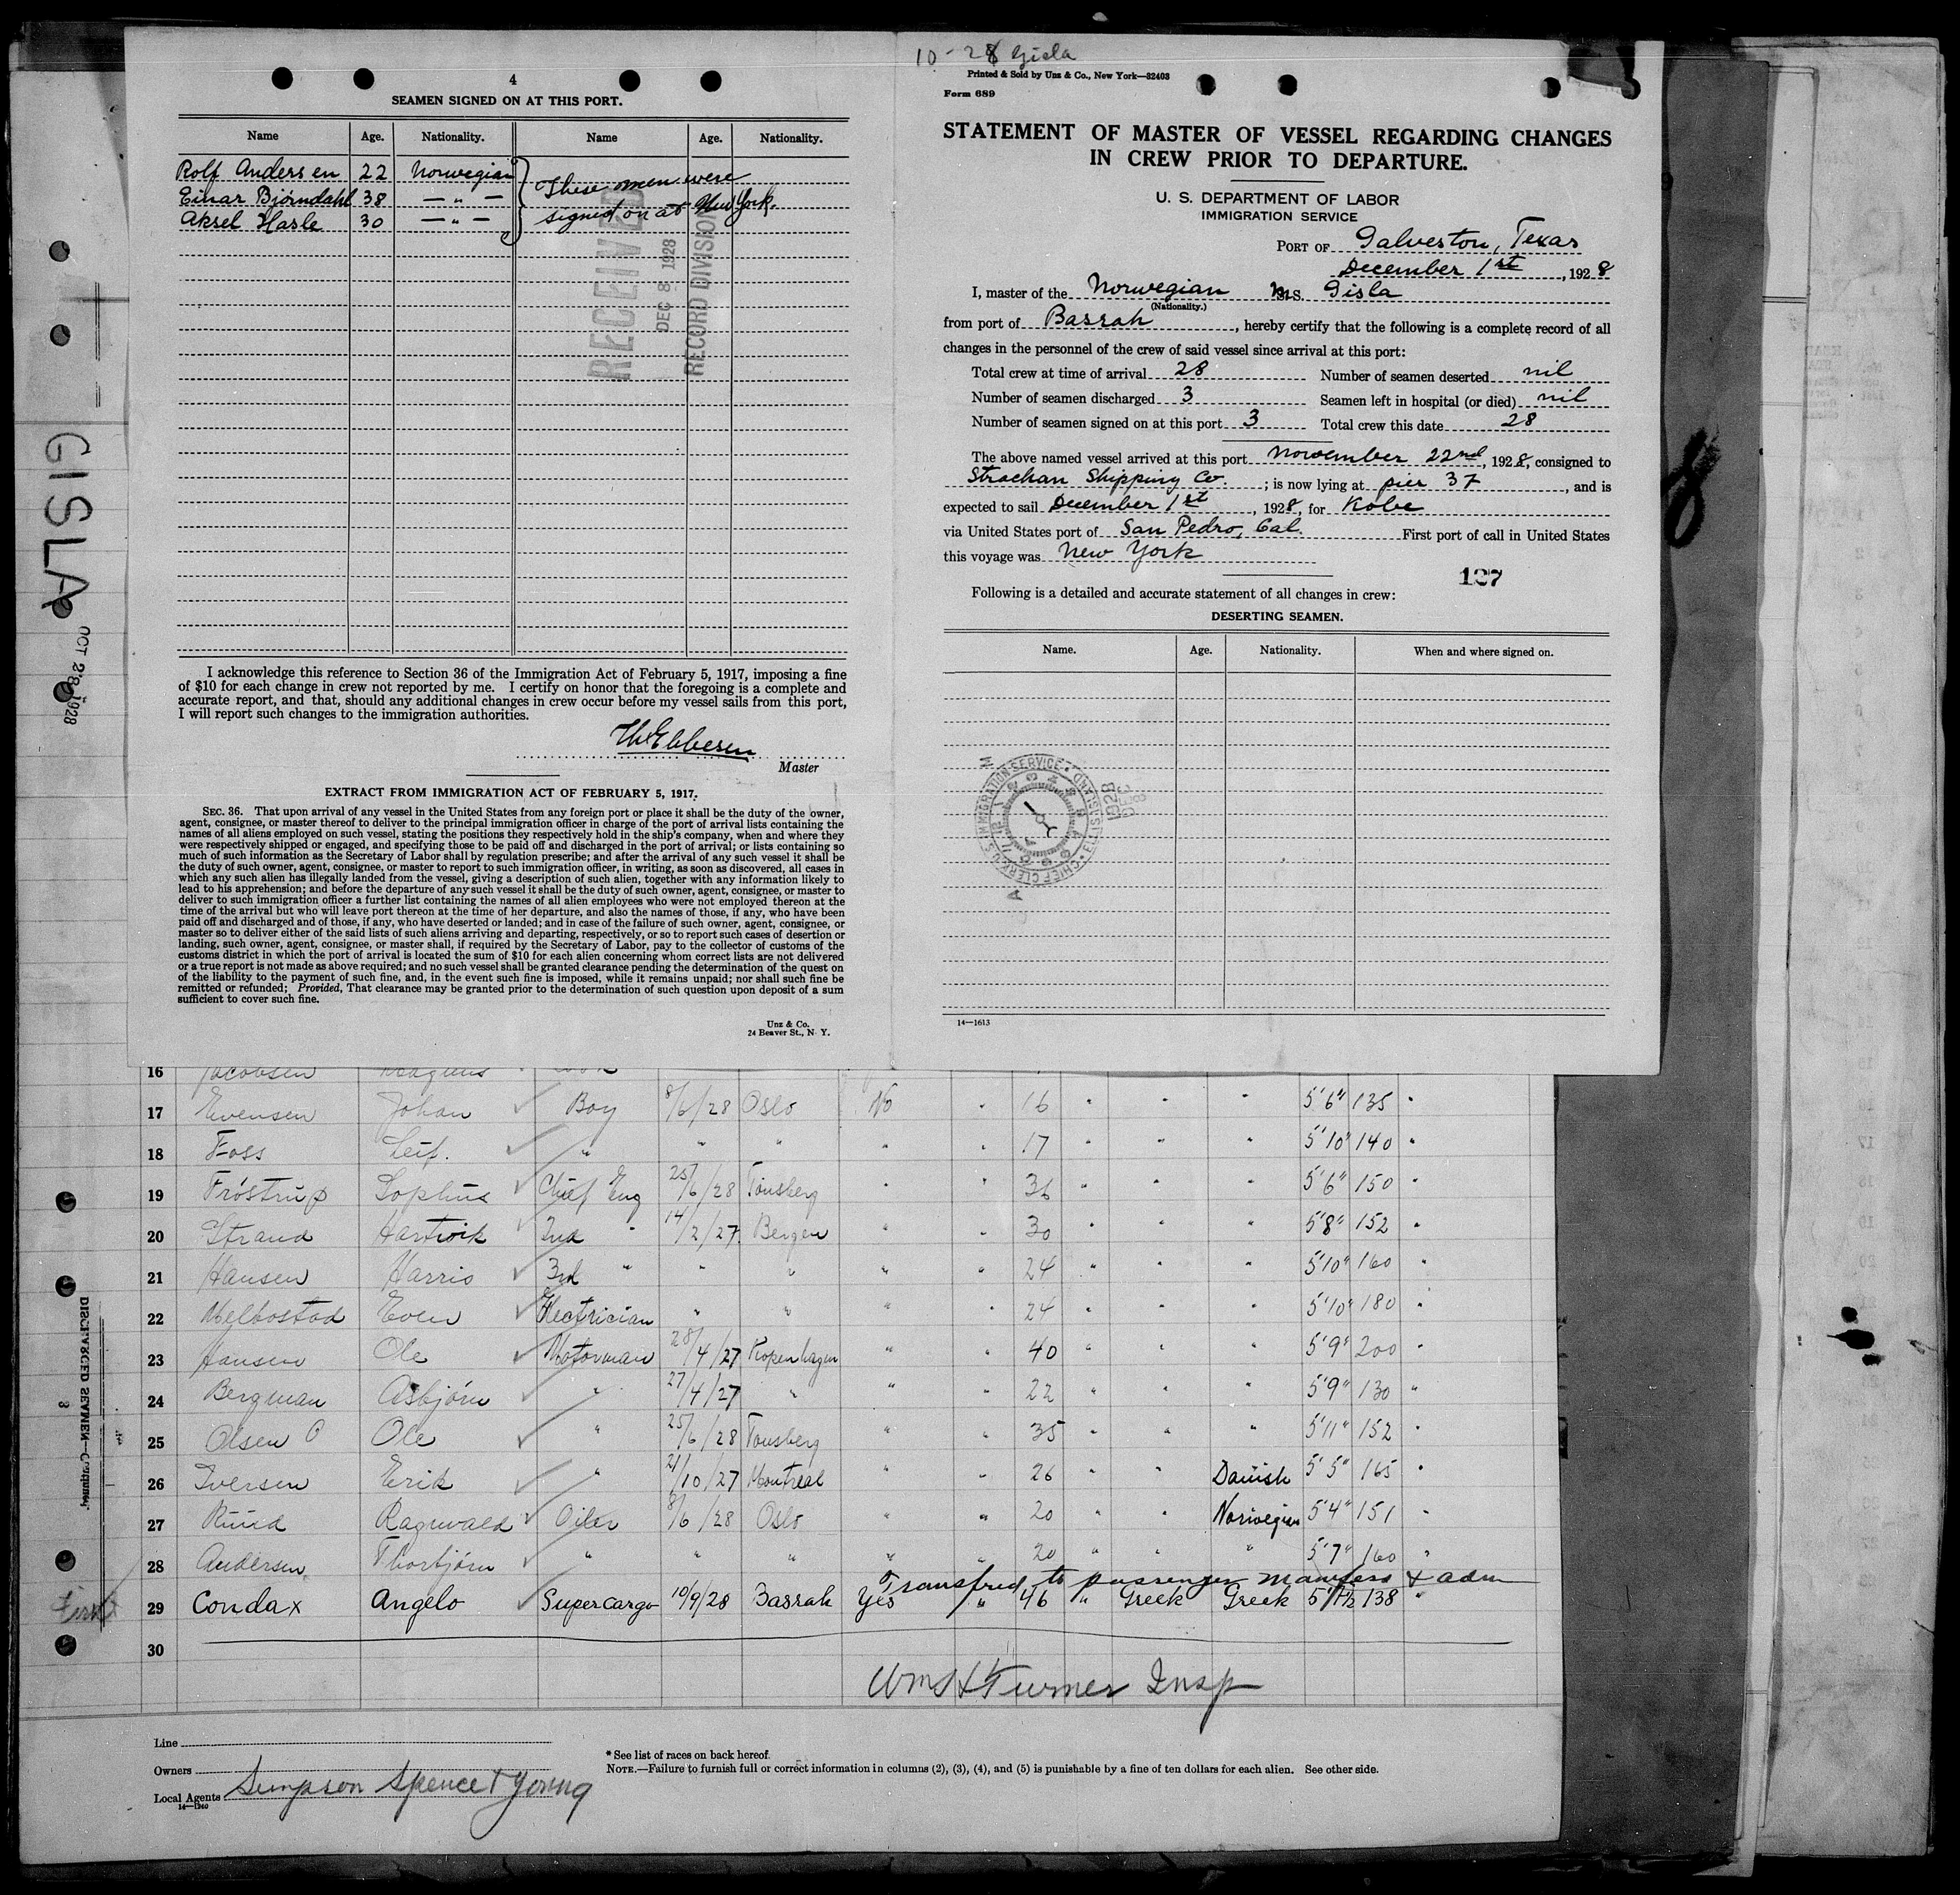 10-28 Gisla
4
SEAMEN SIGNED ON AT THIS PORT.
Name Age. Nationality. Name Age. Nationality.
Rolf Andersen 22 Norwegian
Einar Björndahl 38 — " —
Aksel Hasle 30 — " —
These men were
signed on at New York.
RECEIVED
DEC 8 1928
RECORD DIVISION
I acknowledge this reference to Section 36 of the Immigration Act of February 5, 1917, imposing a fine
of $10 for each change in crew not reported by me. I certify on honor that the foregoing is a complete and
accurate report, and that, should any additional changes in crew occur before my vessel sails from this port,
I will report such changes to the immigration authorities.
Th Ebbesen
Master
EXTRACT FROM IMMIGRATION ACT OF FEBRUARY 5, 1917.
SEC. 36. That upon arrival of any vessel in the United States from any foreign port or place it shall be the duty of the owner,
agent, consignee, or master thereof to deliver to the principal immigration officer in charge of the port of arrival lists containing the
names of all aliens employed on such vessel, stating the positions they respectively hold in the ship's company, when and where they
were respectively shipped or engaged, and specifying those to be paid off and discharged in the port of arrival; or lists containing so
much of such information as the Secretary of Labor shall by regulation prescribe; and after the arrival of any such vessel it shall be
the duty of such owner, agent, consignee, or master to report to such immigration officer, in writing, as soon as discovered, all cases in
which any such alien has illegally landed from the vessel, giving a description of such alien, together with any information likely to
lead to his apprehension; and before the departure of any such vessel it shall be the duty of such owner, agent, consignee, or master to
deliver to such immigration officer a further list containing the names of all alien employees who were not employed thereon at the
time of the arrival but who will leave port thereon at the time of her departure, and also the names of those, if any, who have been
paid off and discharged and of those, if any, who have deserted or landed; and in case of the failure of such owner, agent, consignee, or
master so to deliver either of the said lists of such aliens arriving and departing, respectively, or so to report such cases of desertion or
landing, such owner, agent, consignee, or master shall, if required by the Secretary of Labor, pay to the collector of customs of the
customs district in which the port of arrival is located the sum of $10 for each alien concerning whom correct lists are not delivered
or a true report is not made as above required; and no such vessel shall be granted clearance pending the determination of the quest on
of the liability to the payment of such fine, and, in the event such fine is imposed, while it remains unpaid; nor shall such fine be
remitted or refunded; Provided, That clearance may be granted prior to the determination of such question upon deposit of a sum
sufficient to cover such fine.
Unz & Co.
24 Beaver St., N. Y.
Printed & Sold by Unz & Co., New York—82403
Form 689
STATEMENT OF MASTER OF VESSEL REGARDING CHANGES
IN CREW PRIOR TO DEPARTURE.
U. S. DEPARTMENT OF LABOR
IMMIGRATION SERVICE
PORT OF Galveston, Texas
December 1st, 1928
I, master of the Norwegian M.S. Gisla
(Nationality.)
from port of Basrah, hereby certify that the following is a complete record of all
changes in the personnel of the crew of said vessel since arrival at this port:
Total crew at time of arrival 28 Number of seamen deserted nil
Number of seamen discharged 3 Seamen left in hospital (or died) nil
Number of seamen signed on at this port 3 Total crew this date 28
The above named vessel arrived at this port November 22nd, 1928, consigned to
Strachan Shipping Co.; is now lying at pier 37, and is
expected to sail December 1st, 1928, for Kobe
via United States port of San Pedro, Cal. First port of call in United States
this voyage was New York
127
Following is a detailed and accurate statement of all changes in crew:
DESERTING SEAMEN.
Name. Age. Nationality. When and where signed on.
IMMIGRATION SERVICE
CHIEF CLERK
DEC 8 1928
14—1613
GISLA
OCT 28 1928
DISCHARGED SEAMEN—Continued.
3
16 Jacobsen Magnus Cook
17 Evensen Johan Boy 8/6/28 Oslo No " 16 " " " 5'6" 135 "
18 Foss Leif. " " " " " 17 " " " 5'10" 140 "
19 Fröstrup Sophus Chief Eng 25/6/28 Tönsberg " " 36 " " " 5'6" 150 "
20 Strand Hartvik 2nd " 14/2/27 Bergen " " 30 " " " 5'8" 152 "
21 Hansen Harris 3rd " " " " " 24 " " " 5'10" 160 "
22 Melbostad Even Electrician " " " " 24 " " " 5'10" 180 "
23 Hansen Ole Motorman 28/4/27 Kopenhagen " " 40 " " " 5'9" 200 "
24 Bergman Asbjörn " 27/4/27 " " " 22 " " " 5'9" 130 "
25 Olsen O Ole " 25/6/28 Tonsberg " " 35 " " " 5'11" 152 "
26 Iversen Erik " 21/10/27 Montreal " " 26 " " Danish 5'5" 165 "
27 Ruud Ragnvald Oiler 8/6/28 Oslo " " 20 " " Norwegian 5'4" 151 "
28 Andersen Thorbjörn " " " " " 20 " " " 5'7" 160 "
Transfred to passenger manifest & adm
29 Condax Angelo Supercargo 10/9/28 Basrah Yes " 46 " Greek Greek 138 "
30
Wm H Turner Insp
Line
Owners
Local Agents Simpson Spence & Young
14—1240
* See list of races on back hereof.
NOTE.—Failure to furnish full or correct information in columns (2), (3), (4), and (5) is punishable by a fine of ten dollars for each alien. See other side.